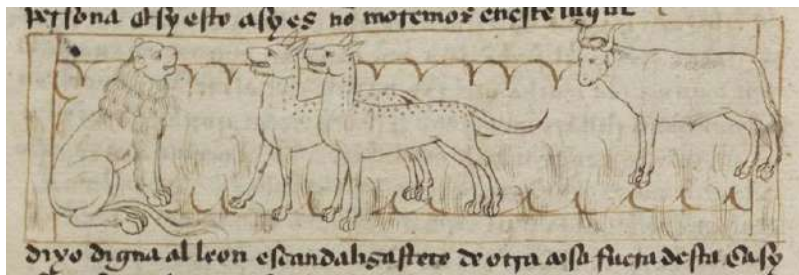 persona Et sy esto asy es non moremos en este lugar
dixo digna al leon escandaligastete de otra cosa fuera desta Ca sy